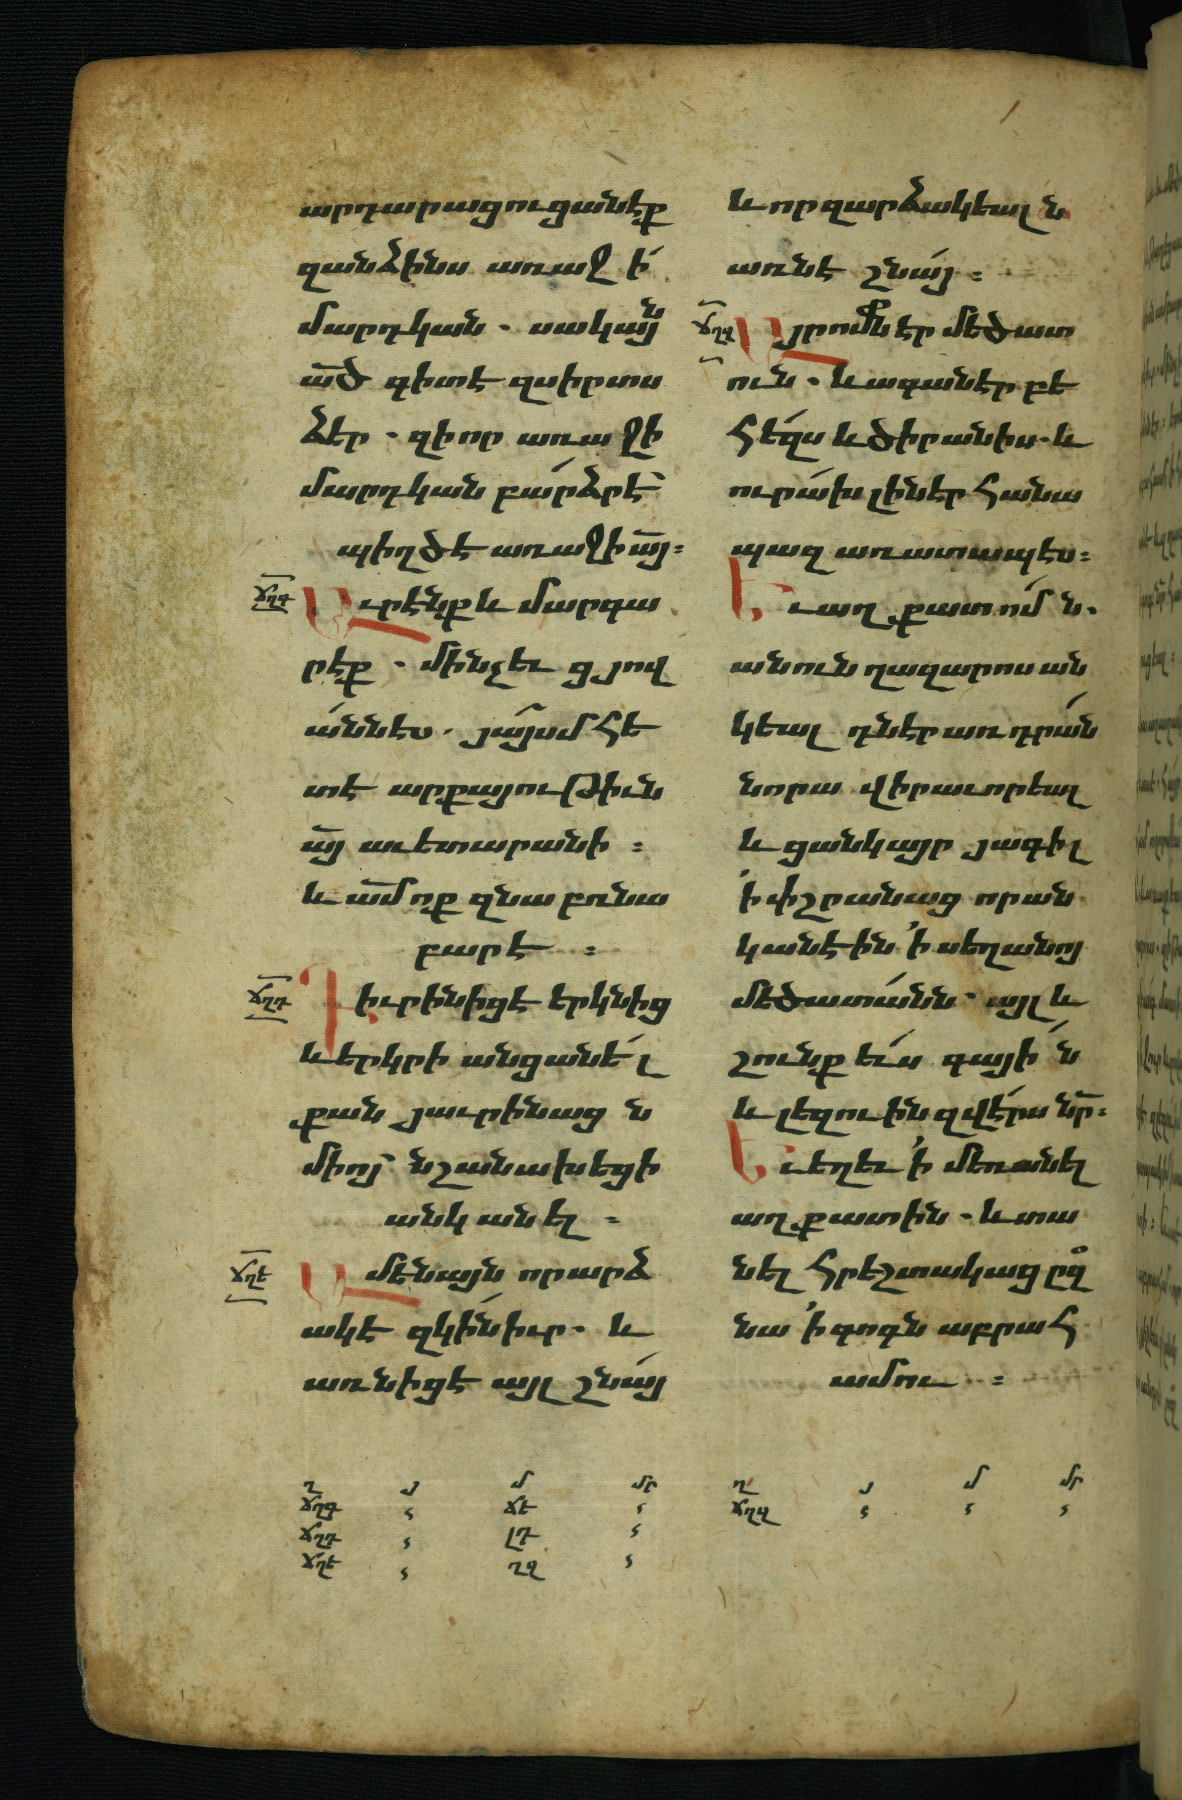 արդարացուցանէք
զանձինս առաջ ի՛
մարդկան ․ սակայն
ած գիտէ զսիրտս
ձեր ․ զի որ առաջի
մարդկան բարձր է՝
պիղծ է առաջի այ ։
ճղգ Աւրէնք և մարգա
րէք ․ մինչեւ ցյով
աննէս ․ յայսմ հե
տէ արքայութիւն
այ աւետարանի ։
և ամ ոք զնա բռնա
բարէ ։
ճղդ Դիւրին իցէ երկնից
և երկրի անցանել
քան յաւրինաց ն
միոյ նշանախեցի
անկանել ։
ճղե Ամենայն որ արձ
ակէ զկին իւր ․ և
առնիցէ այլ շնայ
և որ զարձակեալ ն
առնէ շնայ ։
ճղզ Այր ոմն էր մեծատ
ուն ․ և ագանէր բե
հեզս և ծիրանիս ․ և
ուրախ լինէր հանա
պազ առատապէս ։
Եւ աղքատ ոմն ․
անուն ղազարոս ան
կեալ դնէր առ դրան
նորա վիրաւորեալ
և ցանկայր յագիլ
ի փշրանաց որ ան
կանէին ի սեղանոյ
մեծատանն ․ այլ և
շունք ևս գային
և լեզուին զվէրս նր ։
Եւ եղեւ ի մեռանել
աղքատին ․ և տա
նել հրեշտակաց ըզ
նա ի գոգն աբրահ
ամու ։
ղ յ մ մր
ճղգ ՟ ճե ՟
ճղդ ՟ լդ ՟
ճղե ՟ ղզ ՟
ղ յ մ մր
ճղզ ՟ ՟ ՟